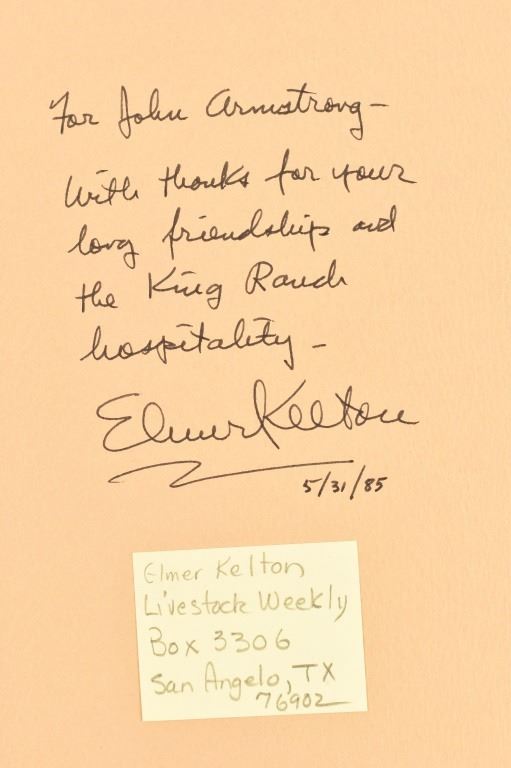 For John Armstrong—
With thanks for your
long friendship and
the King Ranch
hospitality—
Elmer Kelton
5/31/85
Elmer Kelton
Livestock Weekly
Box 3306
San Angelo, TX
76902